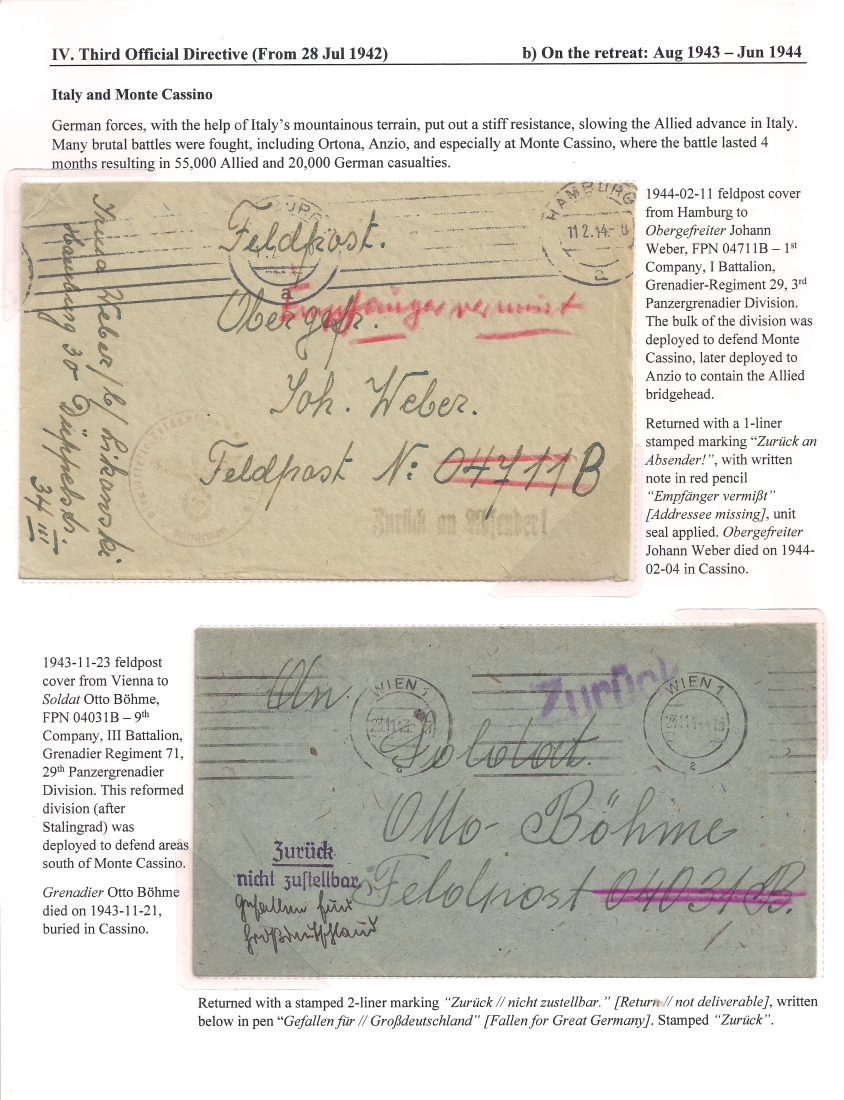 IV. Third Official Directive (From 28 Jul 1942) b) On the retreat: Aug 1943 – Jun 1944
Italy and Monte Cassino
German forces, with the help of Italy's mountainous terrain, put out a stiff resistance, slowing the Allied advance in Italy.
Many brutal battles were fought, including Ortona, Anzio, and especially at Monte Cassino, where the battle lasted 4
months resulting in 55,000 Allied and 20,000 German casualties.
HAMBURG
11 2.14-
Feldpost.
Empfänger vermisst
Obergefr.
Joh. Weber.
Feldpost Nº: 04711B
Zurück an Absender!
Weber
Hamburg 30 Düppelstr.
34 III
1944-02-11 feldpost cover
from Hamburg to
Obergefreiter Johann
Weber, FPN 04711B – 1st
Company, I Battalion,
Grenadier-Regiment 29, 3rd
Panzergrenadier Division.
The bulk of the division was
deployed to defend Monte
Cassino, later deployed to
Anzio to contain the Allied
bridgehead.
Returned with a 1-liner
stamped marking “Zurück an
Absender!”, with written
note in red pencil
“Empfänger vermißt”
[Addressee missing], unit
seal applied. Obergefreiter
Johann Weber died on 1944-
02-04 in Cassino.
1943-11-23 feldpost
cover from Vienna to
Soldat Otto Böhme,
FPN 04031B – 9th
Company, III Battalion,
Grenadier Regiment 71,
29th Panzergrenadier
Division. This reformed
division (after
Stalingrad) was
deployed to defend areas
south of Monte Cassino.
Grenadier Otto Böhme
died on 1943-11-21,
buried in Cassino.
An
WIEN 1
Zurück
WIEN 1
Soldat.
Otto Böhme
Feldpost 04031B.
Zurück
nicht zustellbar
Gefallen für
Großdeutschland
Returned with a stamped 2-liner marking “Zurück // nicht zustellbar.” [Return // not deliverable], written
below in pen “Gefallen für // Großdeutschland” [Fallen for Great Germany]. Stamped “Zurück”.